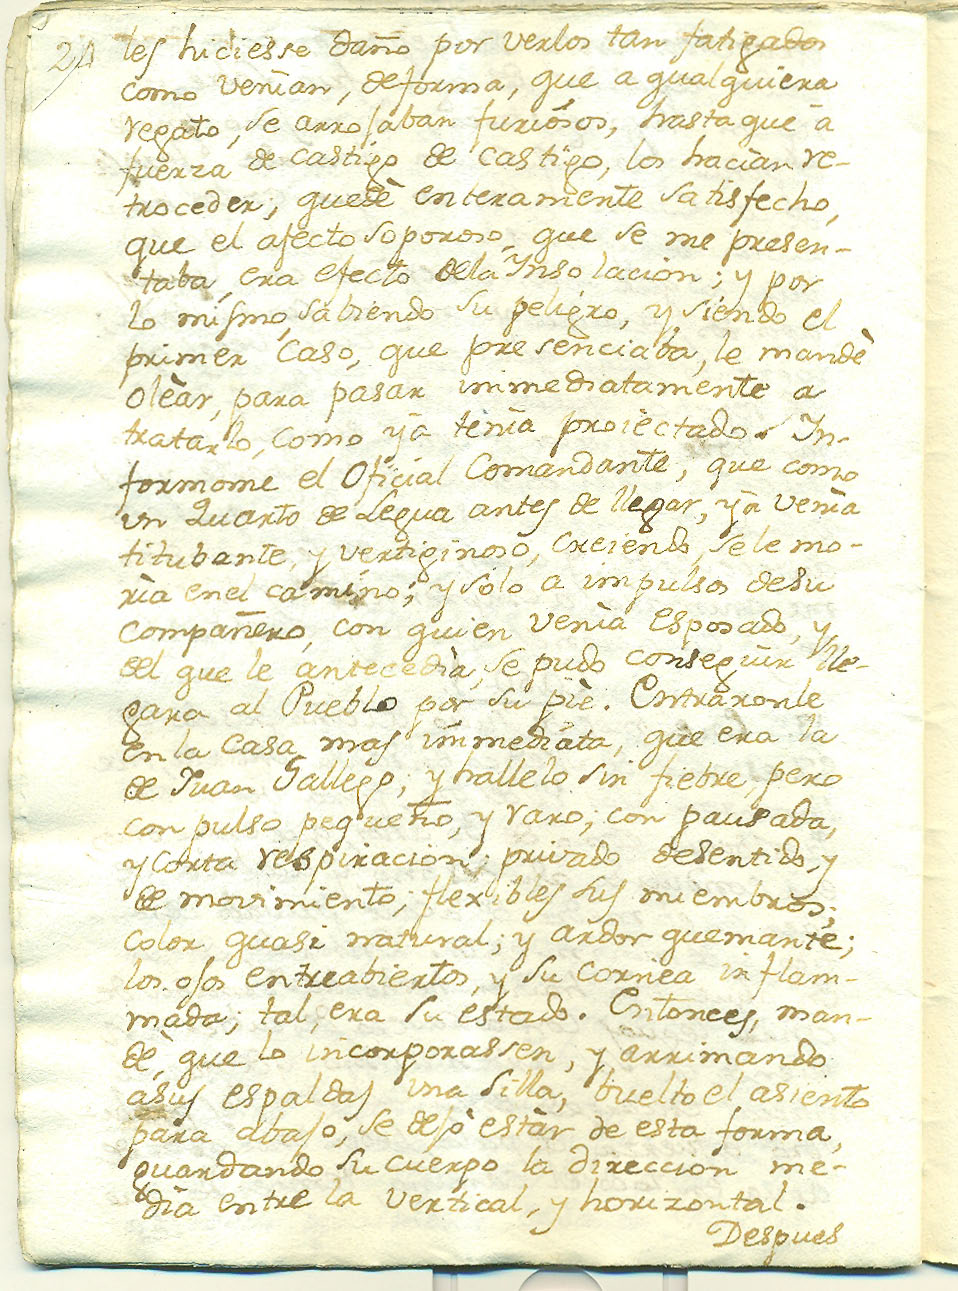 24
les hiciesse daño por verlos tan fatigados
como venìan, deforma, que a qualquiera
regato, se arrojàban furiòsos, hasta que à
fuerza de castigo de castigo, los hacìan re-
troceder; quedè enteramente satisfecho,
que el afecto soporoso, que se me presen-
taba, era efecto dela Insolacion; y por
lo mismo, sabiendo su peligro, y siendo el
primer caso, que presenciaba, le mandè
olèar, para pasar immediatamente a
tratarlo, como yà tenìa proiectado. In-
formome el Oficial Comandante, que como
un Quarto de Legua antes de llegar, yà venìa
titubante, y vertiginoso, creiendo, se le mo-
rìa en el camino; y sólo a impulsos desu
compañero, con quien venìa esposado, y
del que le antecedìa, se pudo conseguir lle-
gara al Pueblo por su piè. Entraronle
en la casa mas immediàta, que era la
de Juan Gallego; y hallelo sin fiebre, pero
con pulso pequeño, y raro; con pausada,
y corta respiracion; privado desentido, y
de movimiento; flexibles sus miembros;
color quasi natural; y ardor quemante;
los ojos entreabiertos, y su cornea inflam-
mada; tal, era su estado. Entonces, man-
dè, que lo incorporassen, y arrimando
asus espaldas una silla, buelto el asiento
para abajo, se dejò estàr de esta forma,
guardando su cuerpo la direccion me-
dia entre la vertical, y horizontal.
Despues